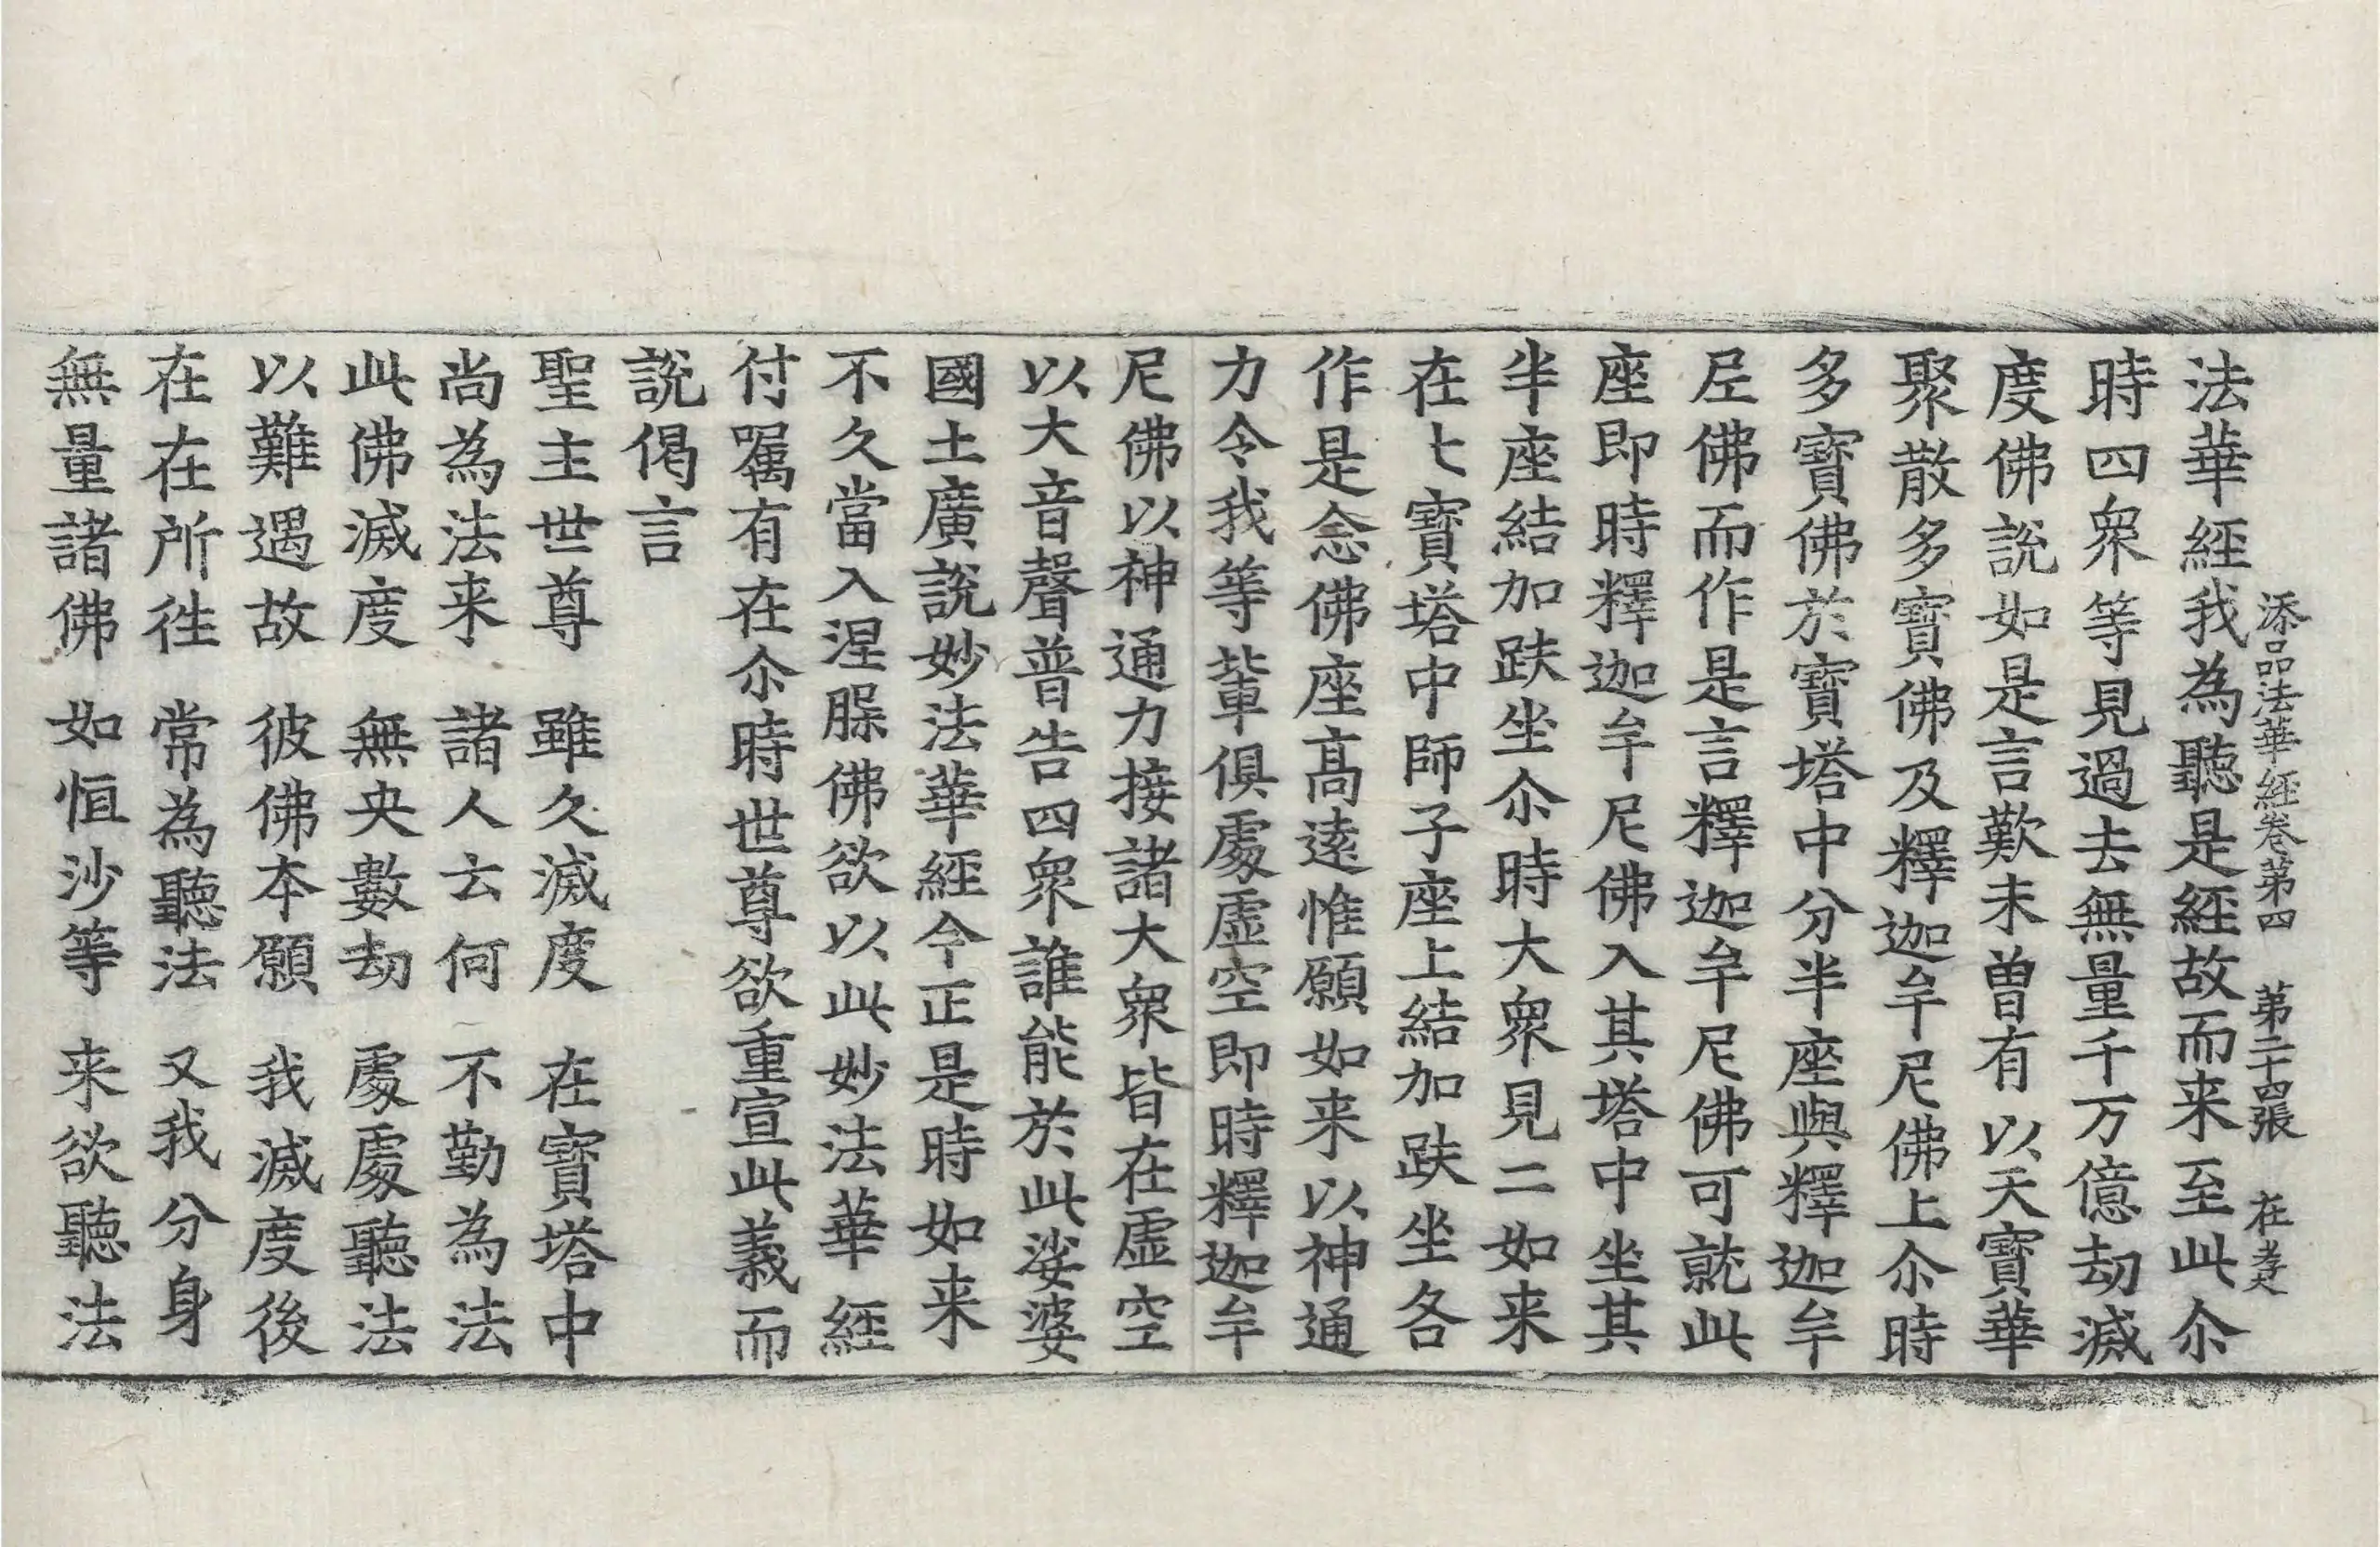 添品法華經卷第四 第二十四張 在
法華經我為聽是經故而来至此尒
時四衆等見過去無量千万億劫滅
度佛說如是言歎未曽有以天寶華
聚散多寶佛及釋迦牟尼佛上尒時
多寶佛於寶塔中分半座與釋迦牟
尼佛而作是言釋迦牟尼佛可就此
座即時釋迦牟尼佛入其塔中坐其
半座結加趺坐尒時大衆見二如来
在七寶塔中師子座上結加趺坐各
作是念佛座高遠惟願如来以神通
力令我等軰俱處虛空即時釋迦牟
尼佛以神通力接諸大衆皆在虛空
以大音聲普告四衆誰能於此娑婆
國土廣說妙法華經今正是時如来
不久當入涅槃佛欲以此妙法華經
付囑有在尒時世尊欲重宣此義而
說偈言
聖主世尊 雖久滅度 在寶塔中
尚為法来 諸人云何 不勤為法
此佛滅度 無央數劫 處處聽法
以難遇故 彼佛本願 我滅度後
在在所徃 常為聽法 又我分身
無量諸佛 如恒沙等 来欲聽法